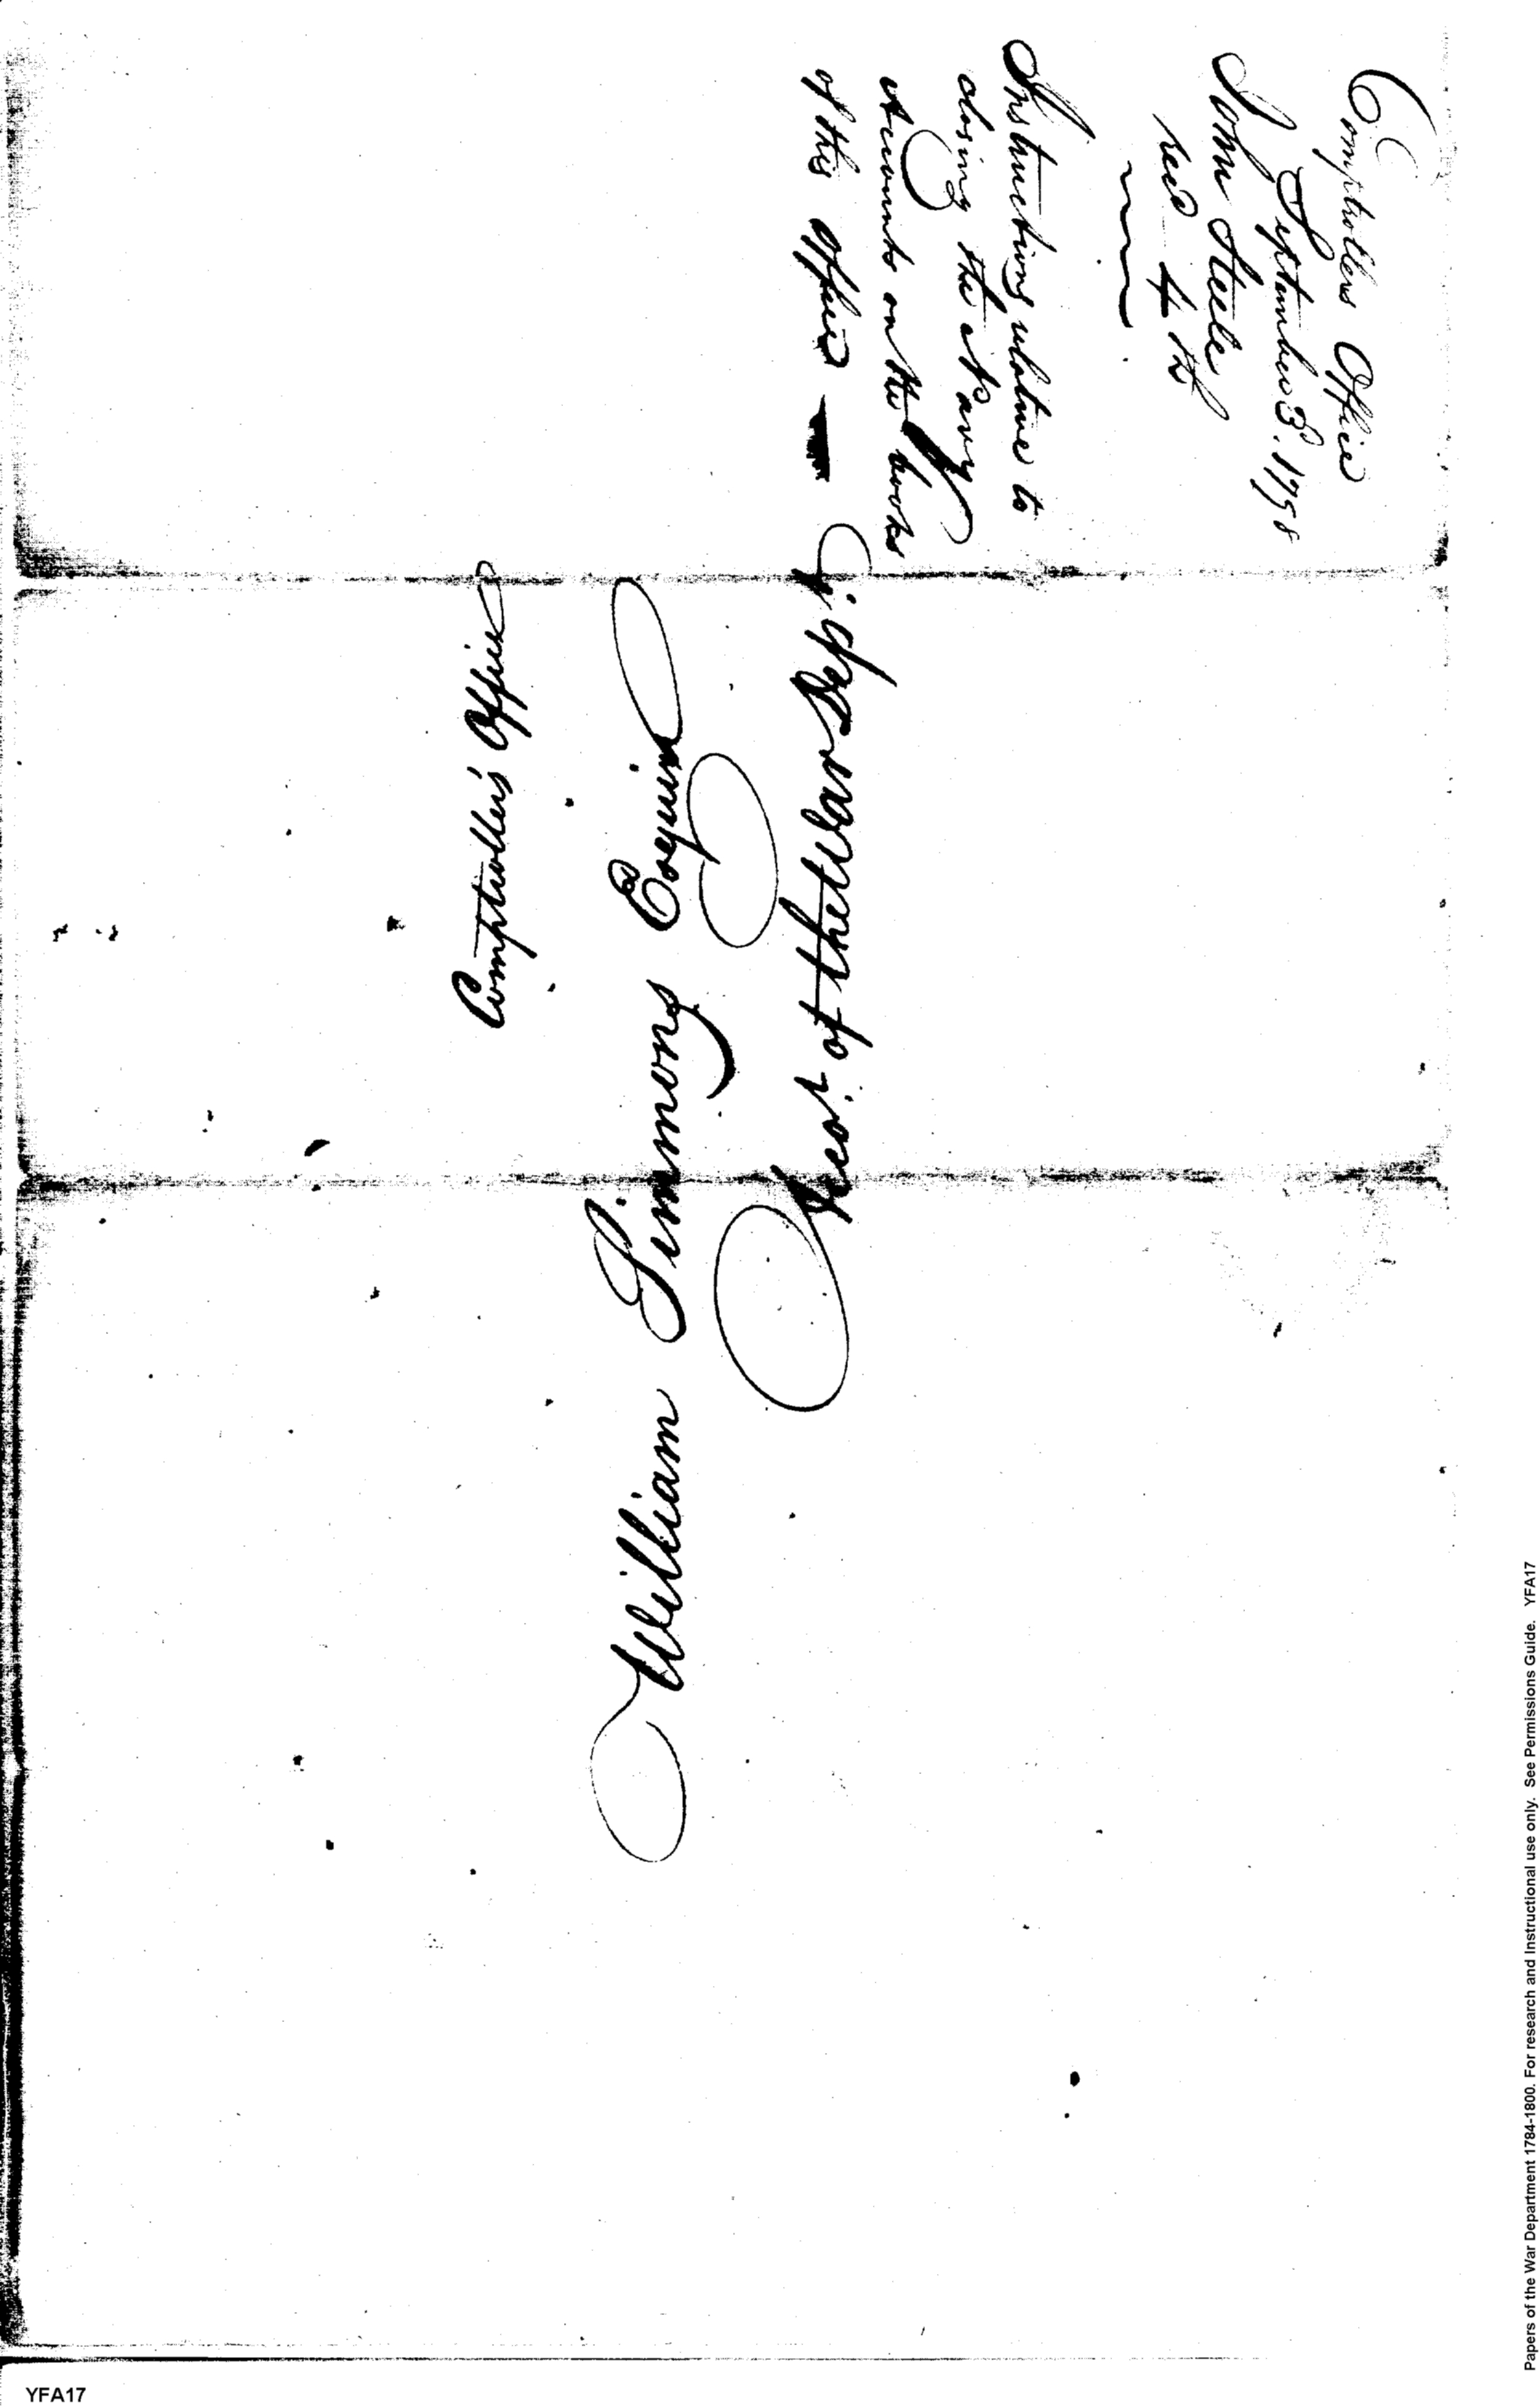 Comptrollers Office
September 3. 1798
John Steele
recd 4th
Instructions relative to
closing the Navy
Accounts on the books
of this Office
Comptroller's Office
William Simmons Esquire
Acct. of the War Dept.
Papers of the War Department 1784-1800. For research and Instructional use only. See Permissions Guide. YFA17
YFA17